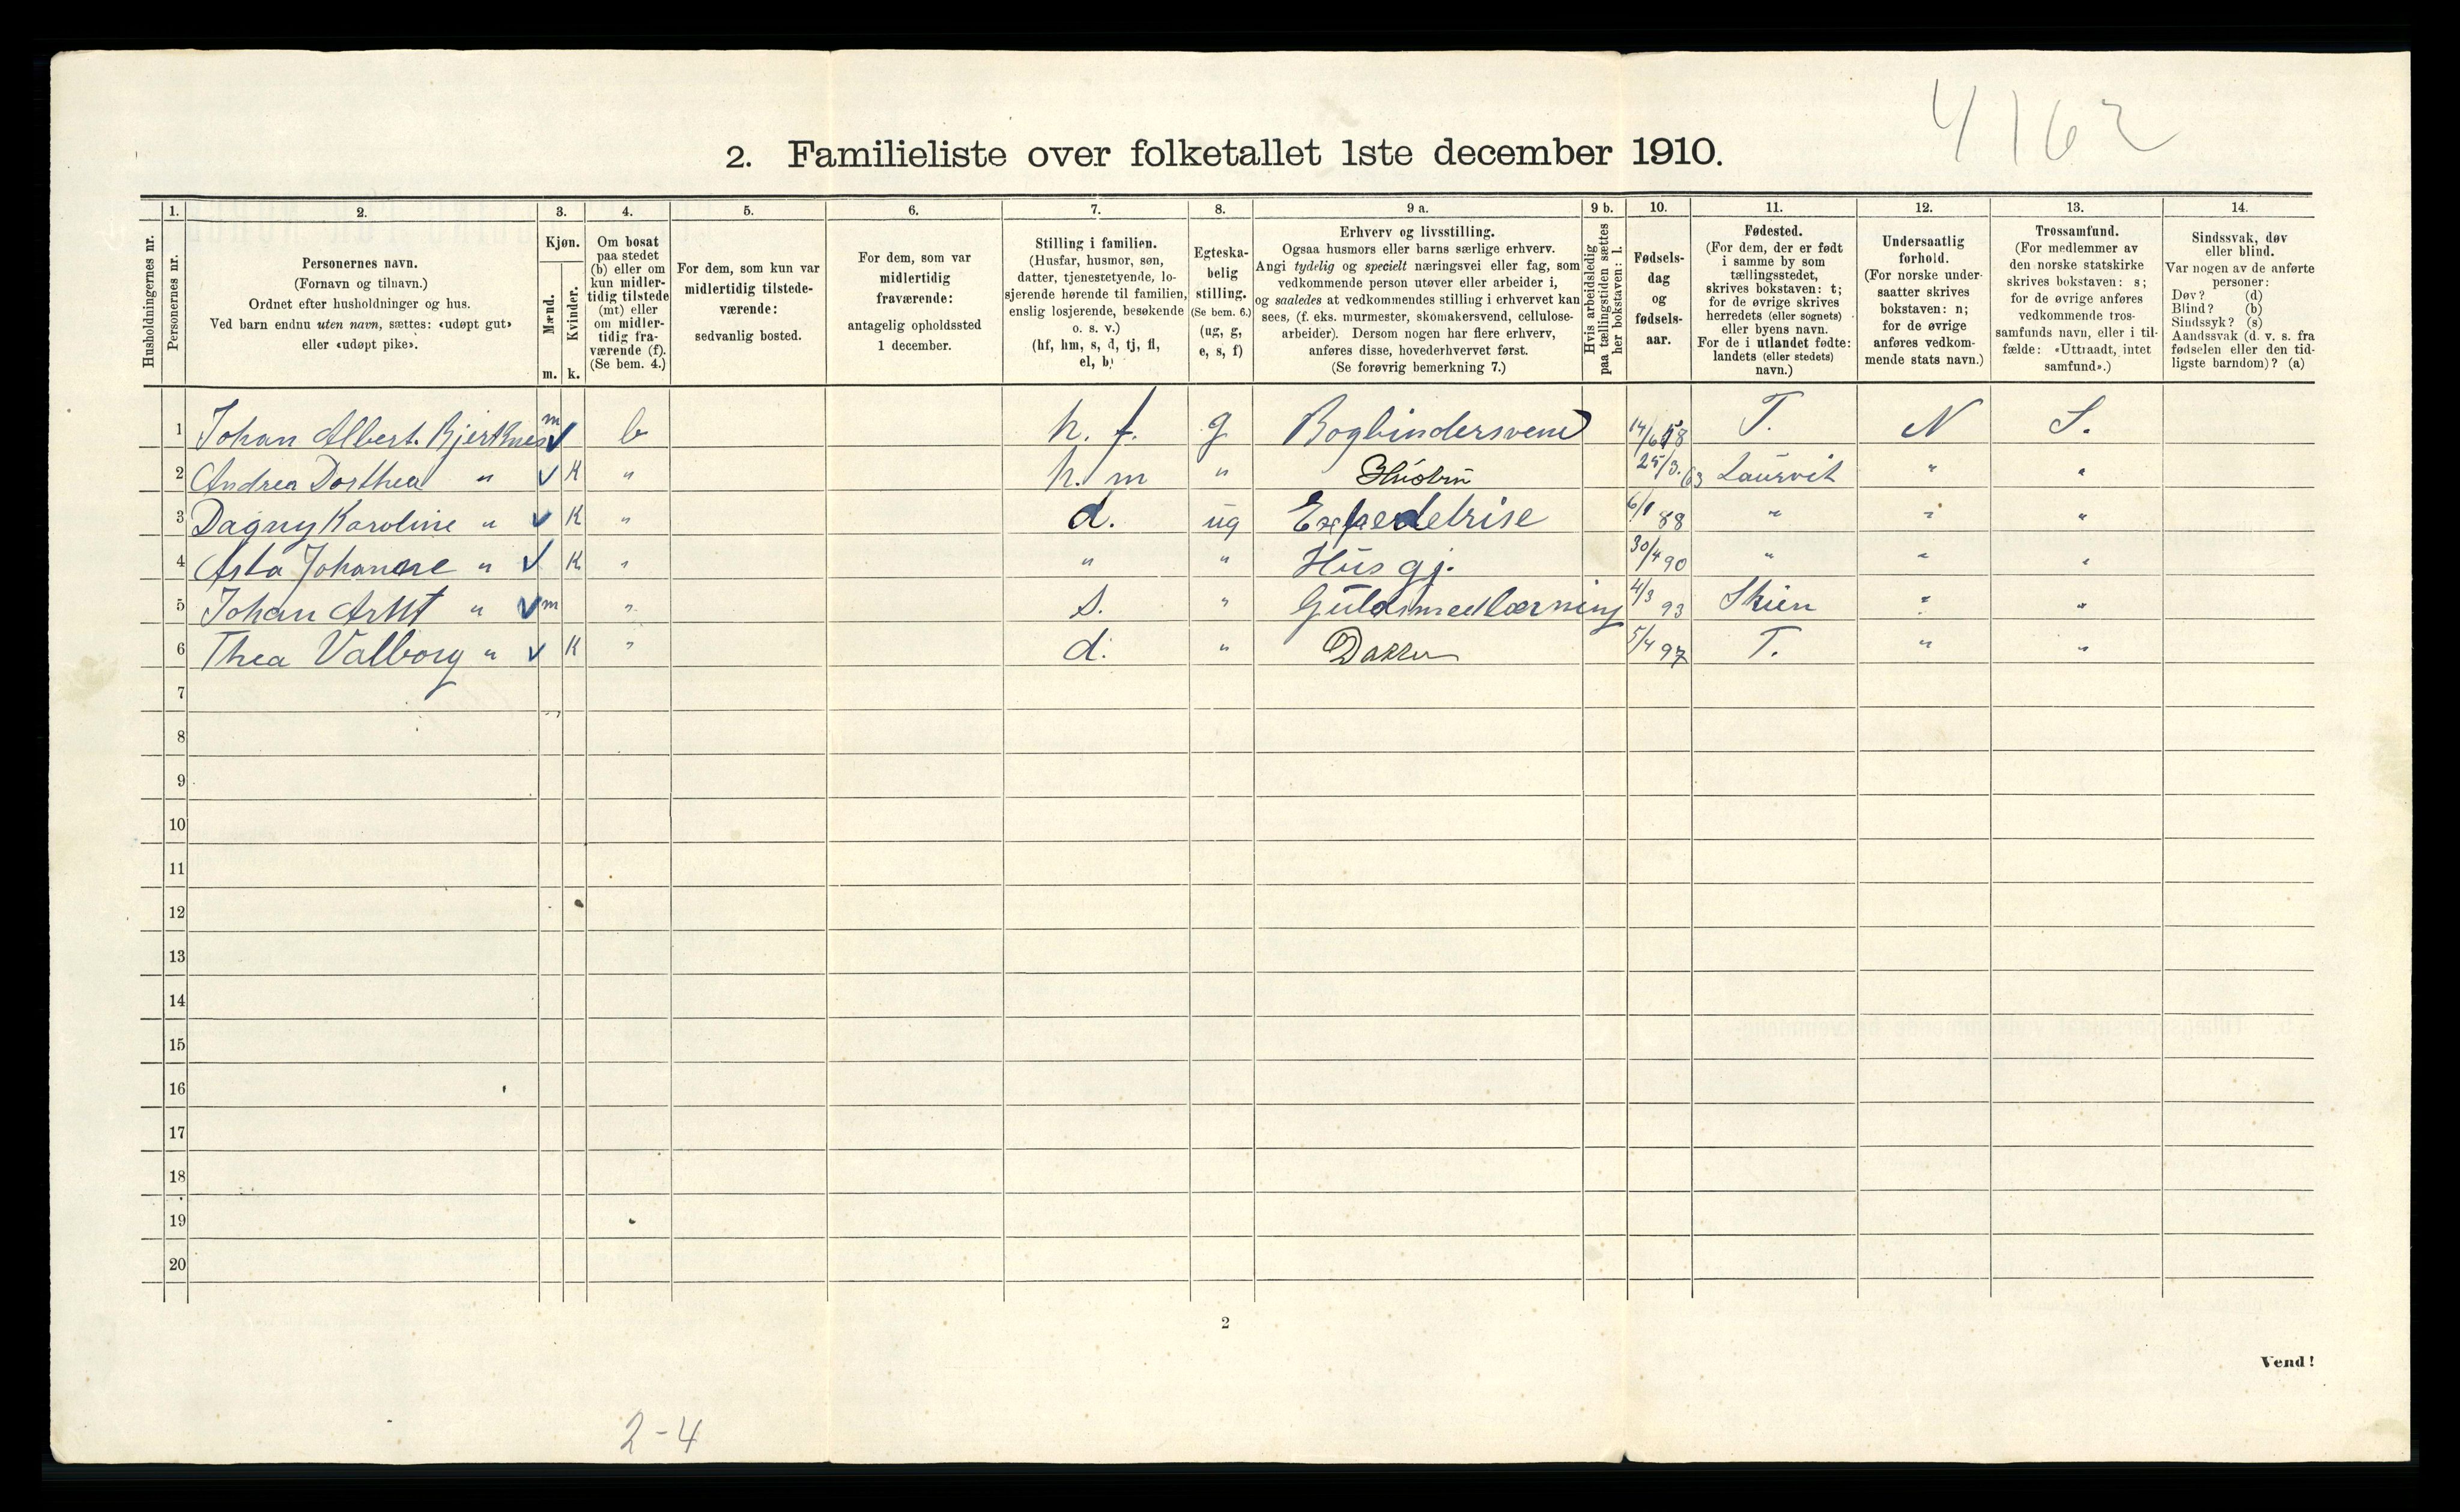 4162
2. Familieliste over folketallet 1ste december 1910.
Husholdningernes nr.
1.
Personernes nr.
2.
Personernes navn.
(Fornavn og tilnavn.)
Ordnet efter husholdninger og hus.
Ved barn endnu uten navn, sættes: «udøpt gut»
eller «udøpt pike».
3.
Kjøn.
Mænd.
Kvinder.
m. k.
4.
Om bosat
paa stedet
(b) eller om
kun midler-
tidig tilstede
(mt) eller
om midler-
tidig fra-
værende (f).
(Se bem. 4.)
5.
For dem, som kun var
midlertidig tilstede-
værende:
sedvanlig bosted.
6.
For dem, som var
midlertidig
fraværende:
antagelig opholdssted
1 december.
7.
Stilling i familien.
(Husfar, husmor, søn,
datter, tjenestetyende, lo-
sjerende hørende til familien,
enslig losjerende, besøkende
o. s. v.)
(hf, hm, s, d, tj, fl,
el, b)
8.
Egteska-
belig
stilling.
(Se bem. 6.)
(ug, g,
e, s, f)
9 a.
Erhverv og livsstilling.
Ogsaa husmors eller barns særlige erhverv.
Angi tydelig og specielt næringsvei eller fag, som
vedkommende person utøver eller arbeider i,
og saaledes at vedkommendes stilling i erhvervet kan
sees, (f. eks. murmester, skomakersvend, cellulose-
arbeider). Dersom nogen har flere erhverv,
anføres disse, hovederhvervet først.
(Se forøvrig bemerkning 7.)
9 b.
Hvis arbeidsledig
paa tællingstiden sættes
her bokstaven: l.
10.
Fødsels-
dag
og
fødsels-
aar.
11.
Fødested.
(For dem, der er født
i samme by som
tællingsstedet,
skrives bokstaven: t;
for de øvrige skrives
herredets (eller sognets)
eller byens navn.
For de i utlandet fødte:
landets (eller stedets)
navn.)
12.
Undersaatlig
forhold.
(For norske under-
saatter skrives
bokstaven: n;
for de øvrige
anføres vedkom-
mende stats navn.)
13.
Trossamfund.
(For medlemmer av
den norske statskirke
skrives bokstaven: s;
for de øvrige anføres
vedkommende tros-
samfunds navn, eller i til-
fælde: «Uttraadt, intet
samfund».)
14.
Sindssvak, døv
eller blind.
Var nogen av de anførte
personer:
Døv? (d)
Blind? (b)
Sindssyk? (s)
Aandssvak (d. v. s. fra
fødselen eller den tid-
ligste barndom)? (a)
1 Johan Albert Bjerknes m b h. f. g Bogbindersvend 14/6 58 T. N S.
2 Andrea Dorthea " K " h. m " Hustru 25/3 63 Laurvik " "
3 Dagny Karoline " K " d. ug Expedetrise 6/1 88 " " "
4 Asta Johanne " K " " " Hus gj. 30/4 90 " " "
5 Johan Arnt " m " s. " Guldsmedlærning 4/3 93 Skien " "
6 Thea Valborg " K " d. " 5/4 97 T. " "
7
8
9
10
11
12
13
14
15
16
17
18
19
20
2
Vend!
2-4